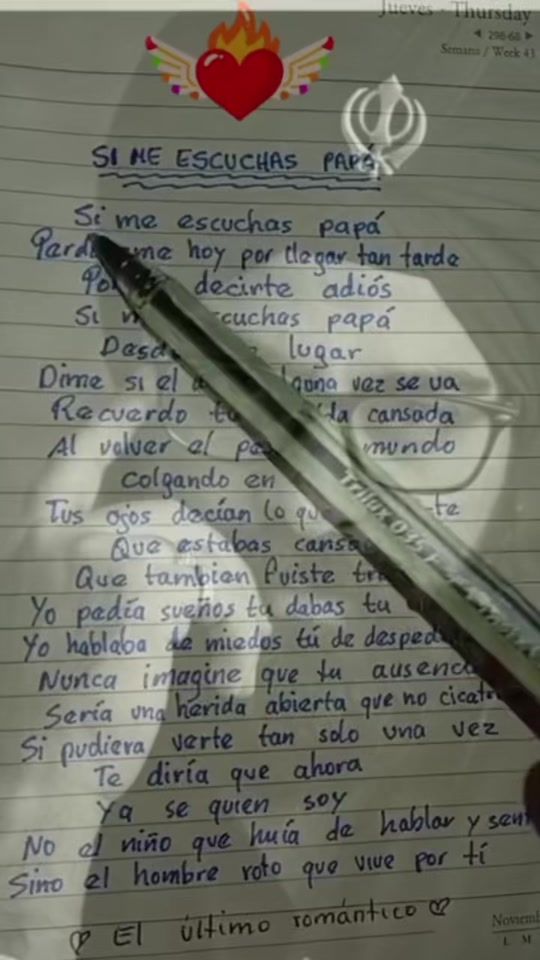 Jueves - Thursday
298-68
Semana / Week 43
SI ME ESCUCHAS PAPÁ
Si me escuchas papá
me hoy por llegar tan tarde
decirte adiós
Si papá
lugar
Dime si el vez se va
Recuerdo cansada
Al volver el mundo
colgando en
Tus ojos decían lo
Que estabas
Que tambien fuiste
Yo pedía sueños tu dabas tu
Yo hablaba de miedos tú de
Nunca imagine que tu
Sería una herida abierta que no
Si pudiera verte tan solo una vez
Te diría que ahora
Ya se quien soy
No el niño que huía de hablar y
Sino el hombre roto que vive por tí
El último romántico
L M